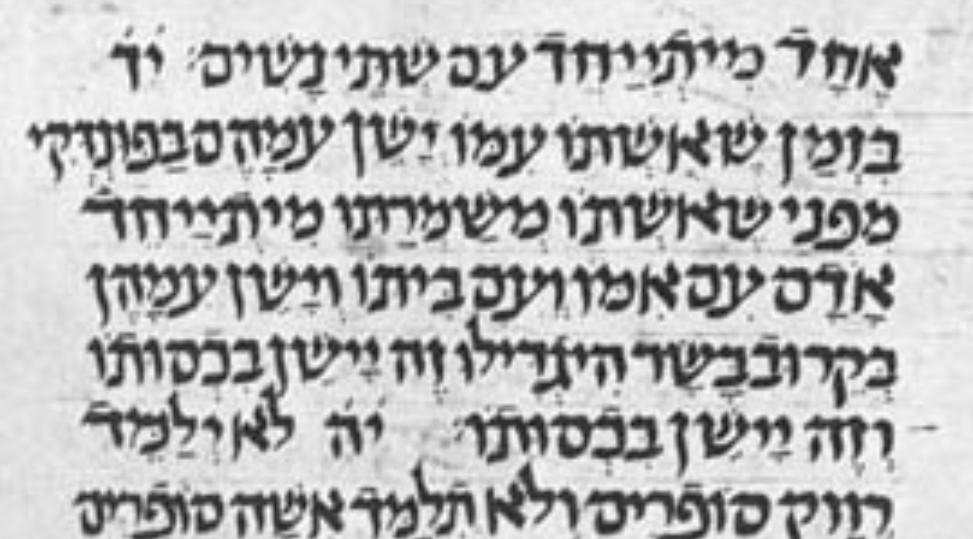 אחד מיתייחד עם שתי נשים׃ יד
בזמן שאשתו עמו ישן עמהם בפונדקי
מפני שאשתו משמרתו מיתייחד
אדם עם אמו ועם ביתו וישן עמהן
בקרוב בשר היגדילו זה יישן בכסותו
וזה יישן בכסותו׃ יה לא ילמיד
רווק סופרים ולא תלמד אשה סופרים